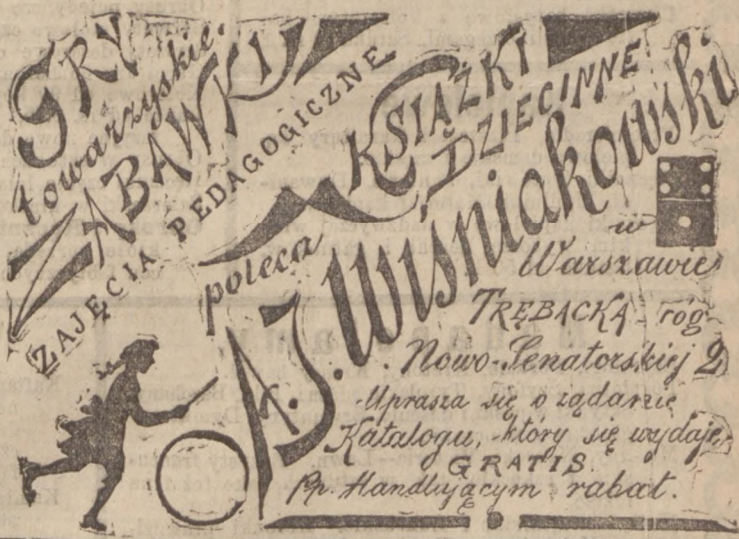 GRY
towarzyskie.
ZABAWKI
ZAJĘCIA PEDAGOGICZNE
KSIĄŻKI
DZIECINNE
poleca
A. J. Wiśniakowski
w
Warszawie
TRĘBACKA róg
Nowo-Senatorskiej 2,
Uprasza się o żądanie
Katalogu, który się wydaje
GRATIS.
Pp. Handlującym rabat.